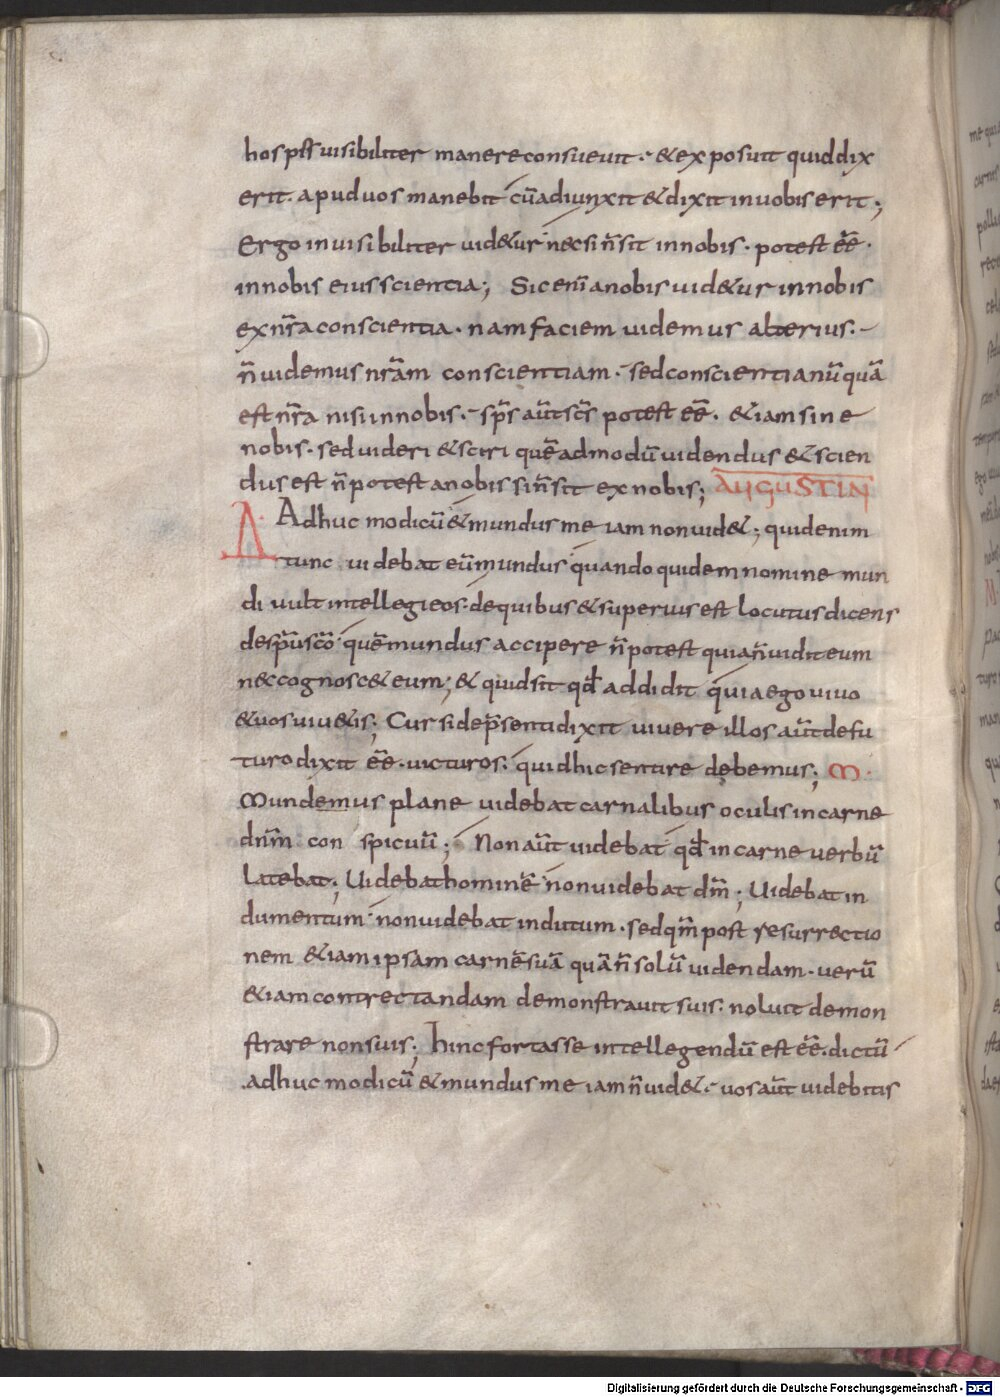 hospes visibiliter manere consuevit · & exposuit quid dix
erit. apud vos manebit cū adiunxit & dixit in vobis erit;
Ergo invisibiliter vid&ur nec si n̄ sit in nobis · potest ēē ·
in nobis eius scientia; Sic eni̅ a nobis vid&ur in nobis
ex nr̄a conscientia · nam faciem videmus alterius ·
n̄ videmus nr̄ām conscientiam · sed conscientia nū quā
est nr̄a nisi in nobis · sp̄s aūt sc̄s potest ēē · &iam sine
nobis · sed videri & sciri quē ad modū videndus & scien
dus est n̄ potest a nobis si n̄ sit ex nobis; AUGUSTIN̅
A Adhuc modicū & mundus me iam non vid&; quid enim
tunc videbat eū mundus quando quidem nomine mun
di vult intellegi eos · de quibus & superius est locutus dicens
de sp̄u sc̄o quē mundus accipere n̄ potest quia n̄ vidit eum
nec cognosc& eum; & quid sit qd̄ addidit quia ego vivo
& vos viv&is; Cur si de p̄senti dixit vivere illos aūt de fu
turo dixit ēē · victuros · quid hic sentire dębemus; M ·
Mundemus plane videbat carnalibus oculis in carne
dn̄m con spicuū; Non aūt videbat qd̄ in carne verbū
latebat; Videbat hominē non videbat dm̄; Videbat in
dumentum non videbat indutum · sed qm̄ post resurrectio
nem &iam ipsam carnē suā quā n̄ solū videndam · verū
&iam contrectandam demonstravit suis · noluit demon
strare non suis; hinc fortasse intellegendū est ēē · dictū
adhuc modicū & mundus me iam n̄ vid& · vos aūt videbitis
Digitalisierung gefördert durch die Deutsche Forschungsgemeinschaft - DFG